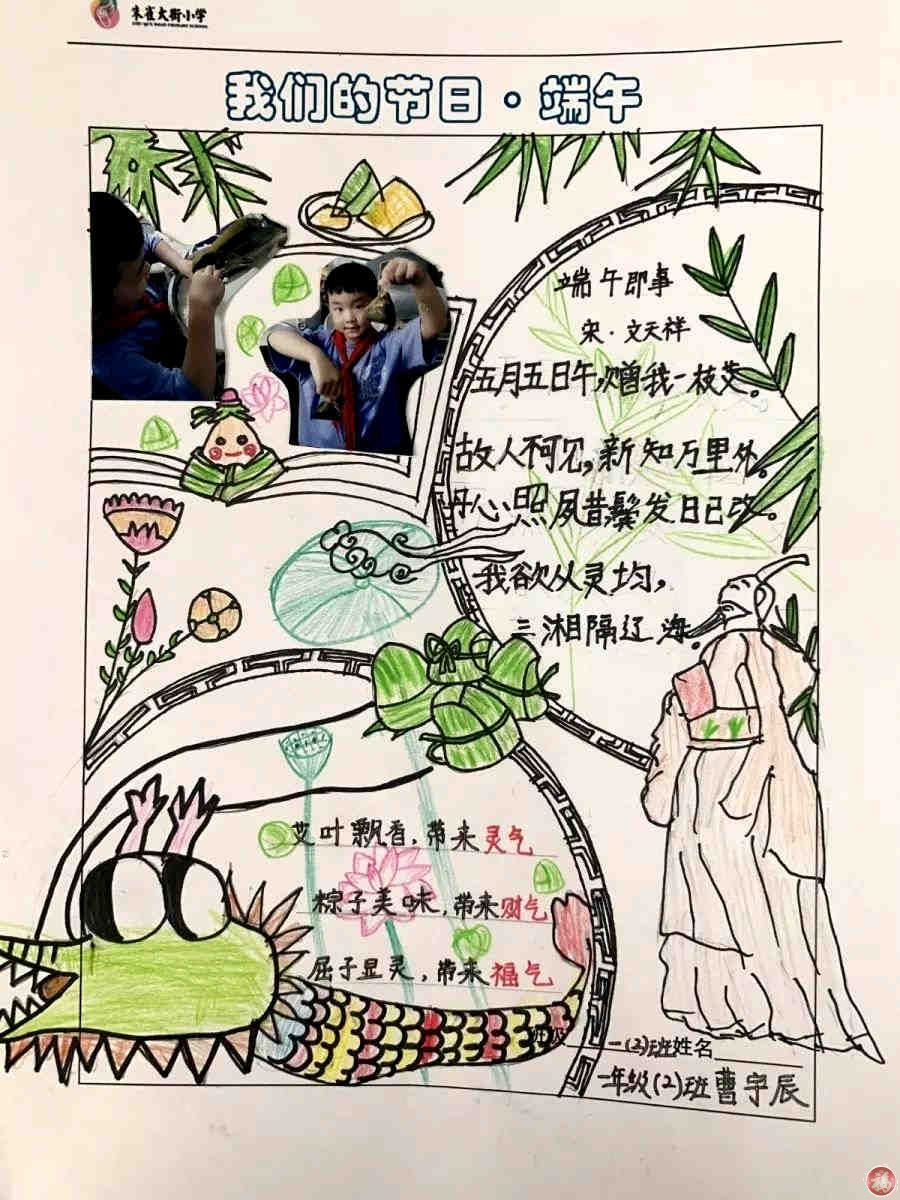 朱雀大街小学
ZHU QUE DAJIE PRIMARY SCHOOL
我们的节日·端午
端午即事
宋·文天祥
五月五日午,赠我一枝艾。
故人不可见,新知万里外。
丹心照夙昔,鬓发日已改。
我欲从灵均,
三湘隔辽海。
艾叶飘香,带来灵气
粽子美味,带来财气
屈子显灵,带来福气
班级 一(2)班姓名
一年级(2)班曹宇辰
福